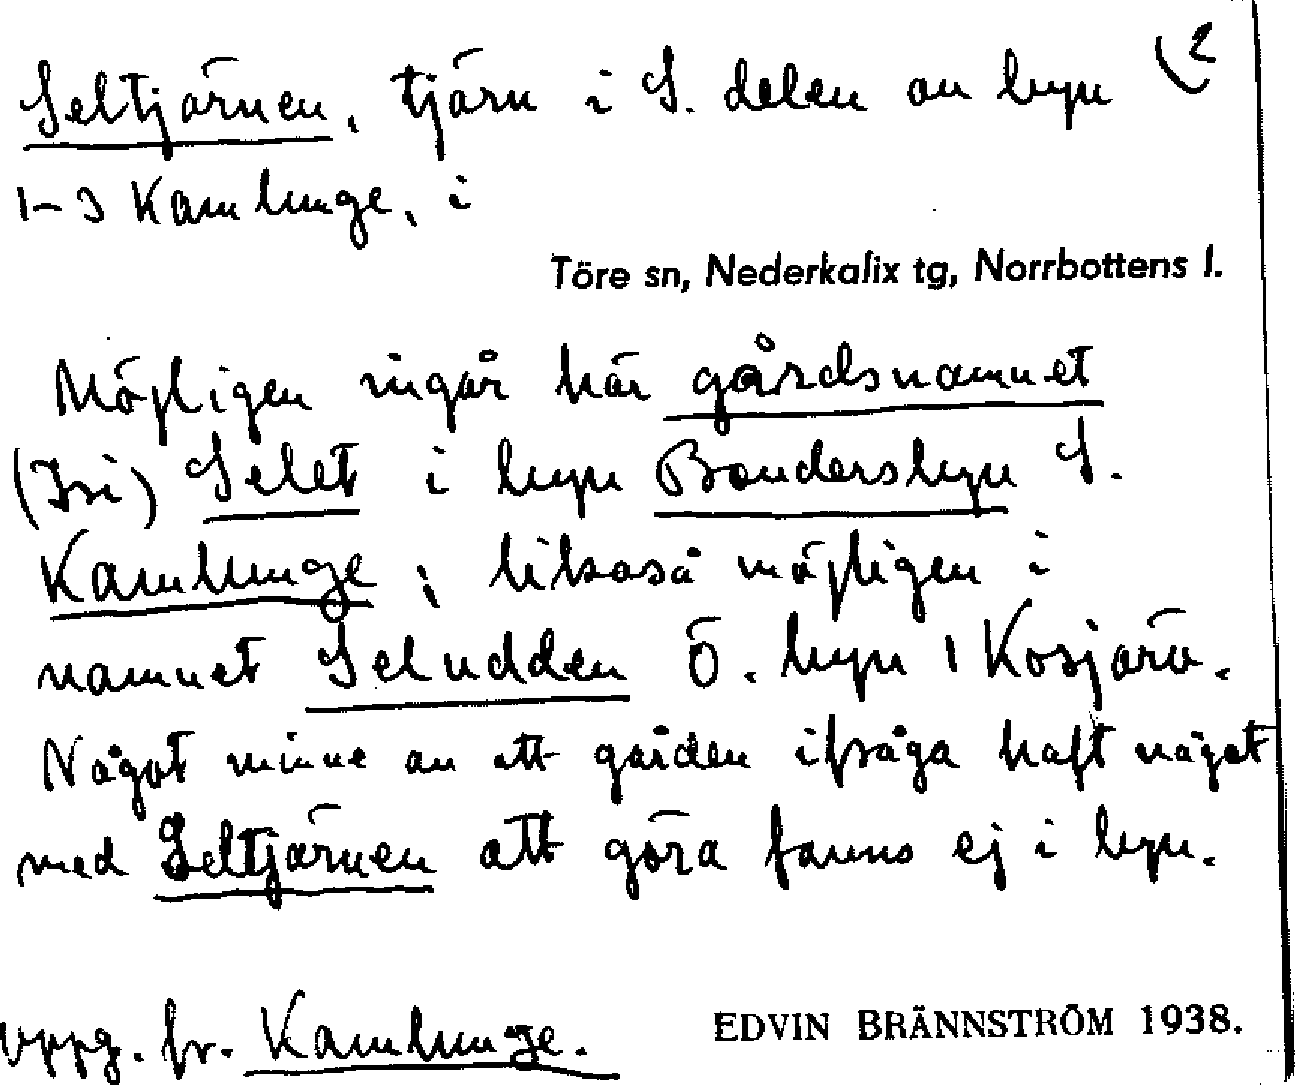 Seltjärnen, tjärn i S. delen av byn (2
1-3 Kamlunge, i
Töre sn, Nederkalix tg, Norrbottens l.
Möjligen ingår här gårdsnamnet
Selet i byn Bondersbyn S.
Kamlunge; likaså möjligen i
namnet Seludden Ö. byn 1 Kosjärv.
Något minne av att gården ifråga haft något
med Seltjärnen att göra fanns ej i byn.
uppg. fr. Kamlunge.
EDVIN BRÄNNSTRÖM 1938.